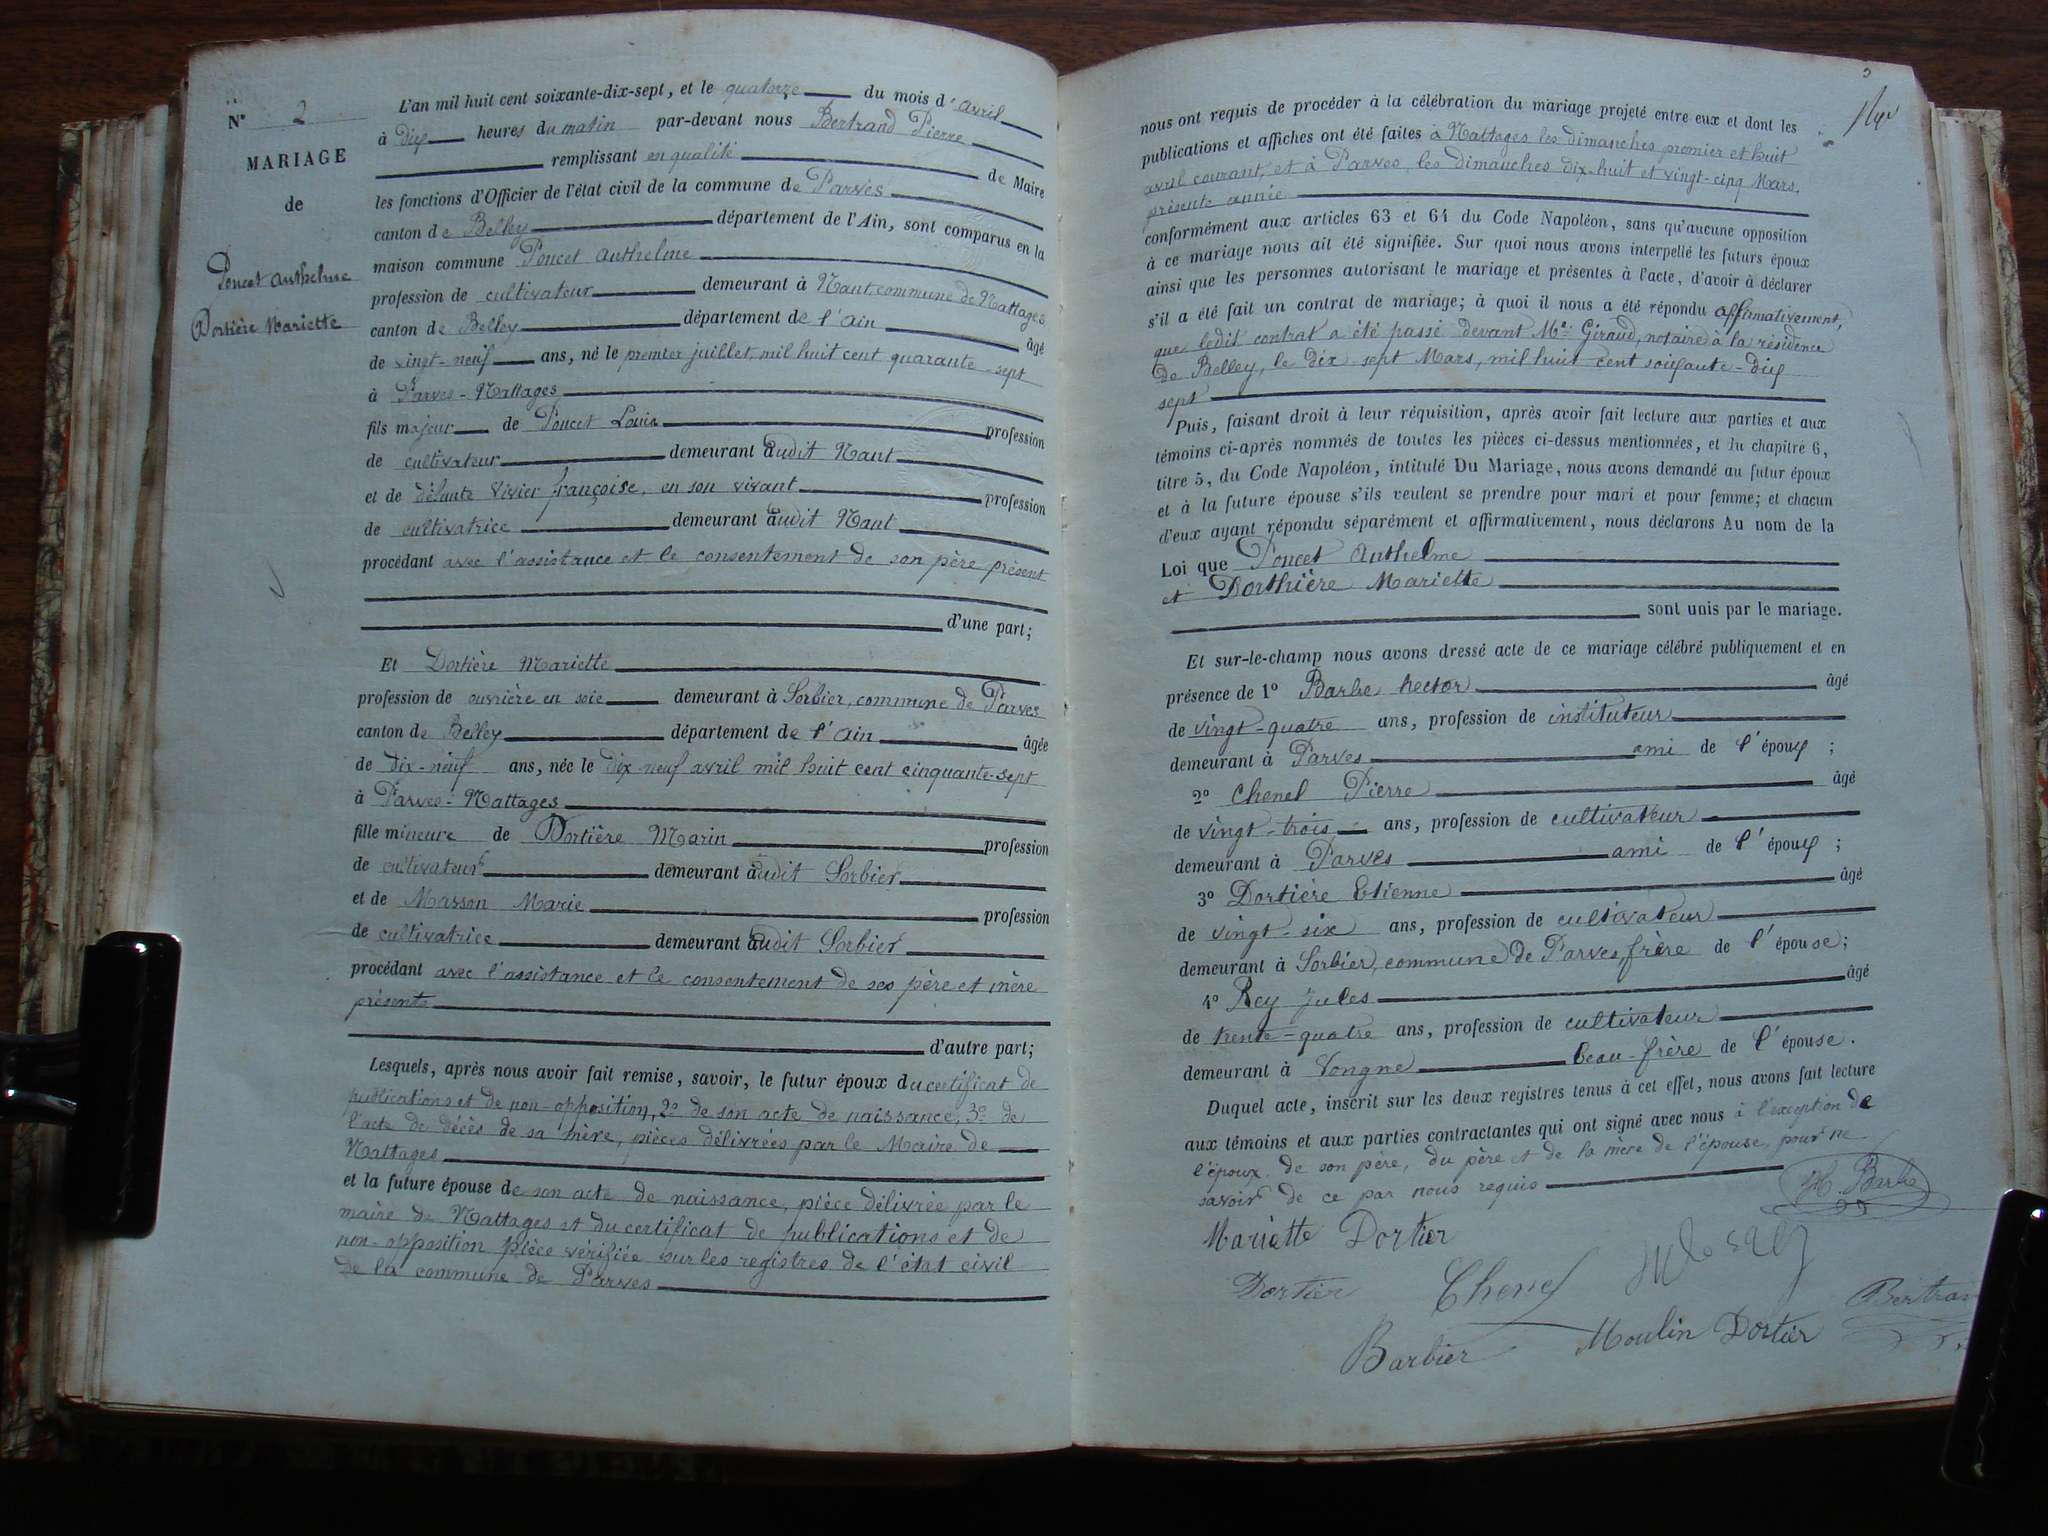 N° 2
MARIAGE
de
Poncet Anthelme
Dortière Mariette
L'an mil huit cent soixante-dix-sept, et le quatorze du mois d'avril
à dix heures du matin par-devant nous Bertrand Pierre
remplissant en qualité de Maire
les fonctions d'Officier de l'état civil de la commune de Parves
canton de Belley département de l'Ain, sont comparus en la
maison commune Poncet Anthelme
profession de cultivateur demeurant à Nant, commune de Nattages
canton de Belley département de l'Ain âgé
de vingt-neuf ans, né le premier juillet, mil huit cent quarante-sept
à Parves-Nattages
fils majeur de Poncet Louis profession
de cultivateur demeurant audit Nant
et de défunte Vivier françoise, en son vivant profession
de cultivatrice demeurant audit Nant
procédant avec l'assistance et le consentement de son père présent
d'une part;
Et Dortière Mariette
profession de ouvrière en soie demeurant à Sorbier, commune de Parves
canton de Belley département de l'Ain âgée
de dix-neuf ans, née le dix neuf avril mil huit cent cinquante-sept
à Parves-Nattages
fille mineure de Dortière Marin profession
de cultivateur demeurant audit Sorbier
et de Masson Marie profession
de cultivatrice demeurant audit Sorbier
procédant avec l'assistance et le consentement de ses père et mère
présents
d'autre part;
Lesquels, après nous avoir fait remise, savoir, le futur époux du certificat de
publications et de non-opposition, 2° de son acte de naissance, 3° de
l'acte de décès de sa mère, pièces délivrées par le Maire de
Nattages
et la future épouse de son acte de naissance, pièce délivrée par le
maire de Nattages et du certificat de publications et de
non-opposition pièce vérifiée sur les registres de l'état civil
de la commune de Parves
nous ont requis de procéder à la célébration du mariage projeté entre eux et dont les
publications et affiches ont été faites à Nattages les dimanches premier et huit
avril courant, et à Parves, les dimanches dix-huit et vingt-cinq Mars,
présente année
conformément aux articles 63 et 64 du Code Napoléon, sans qu'aucune opposition
à ce mariage nous ait été signifiée. Sur quoi nous avons interpellé les futurs époux
ainsi que les personnes autorisant le mariage et présentes à l'acte, d'avoir à déclarer
s'il a été fait un contrat de mariage; à quoi il nous a été répondu affirmativement,
que ledit contrat a été passé devant Me Giraud, notaire à la résidence
de Belley, le dix-sept Mars, mil huit cent soixante-dix
sept
Puis, faisant droit à leur réquisition, après avoir fait lecture aux parties et aux
témoins ci-après nommés de toutes les pièces ci-dessus mentionnées, et lu chapitre 6,
titre 5, du Code Napoléon, intitulé Du Mariage, nous avons demandé au futur époux
et à la future épouse s'ils veulent se prendre pour mari et pour femme; et chacun
d'eux ayant répondu séparément et affirmativement, nous déclarons Au nom de la
Loi que Poncet Anthelme
et Dorthière Mariette
sont unis par le mariage.
Et sur-le-champ nous avons dressé acte de ce mariage célébré publiquement et en
présence de 1° Barbe hector âgé
de vingt-quatre ans, profession de instituteur
demeurant à Parves ami de l'époux;
2° Chenel Pierre âgé
de vingt-trois ans, profession de cultivateur
demeurant à Parves ami de l'époux;
3° Dortière Etienne âgé
de vingt-six ans, profession de cultivateur
demeurant à Sorbier, commune de Parves, frère de l'épouse;
4° Rey Jules âgé
de trente-quatre ans, profession de cultivateur
demeurant à Vongne beau-frère de l'épouse.
Duquel acte, inscrit sur les deux registres tenus à cet effet, nous avons fait lecture
aux témoins et aux parties contractantes qui ont signé avec nous à l'exception de
l'époux, de son père, du père et de la mère de l'épouse, pour ne
savoir de ce par nous requis
H. Barbe
Mariette Dortier
Dortier Chenel Bertran
Barbier Moulin Dortier